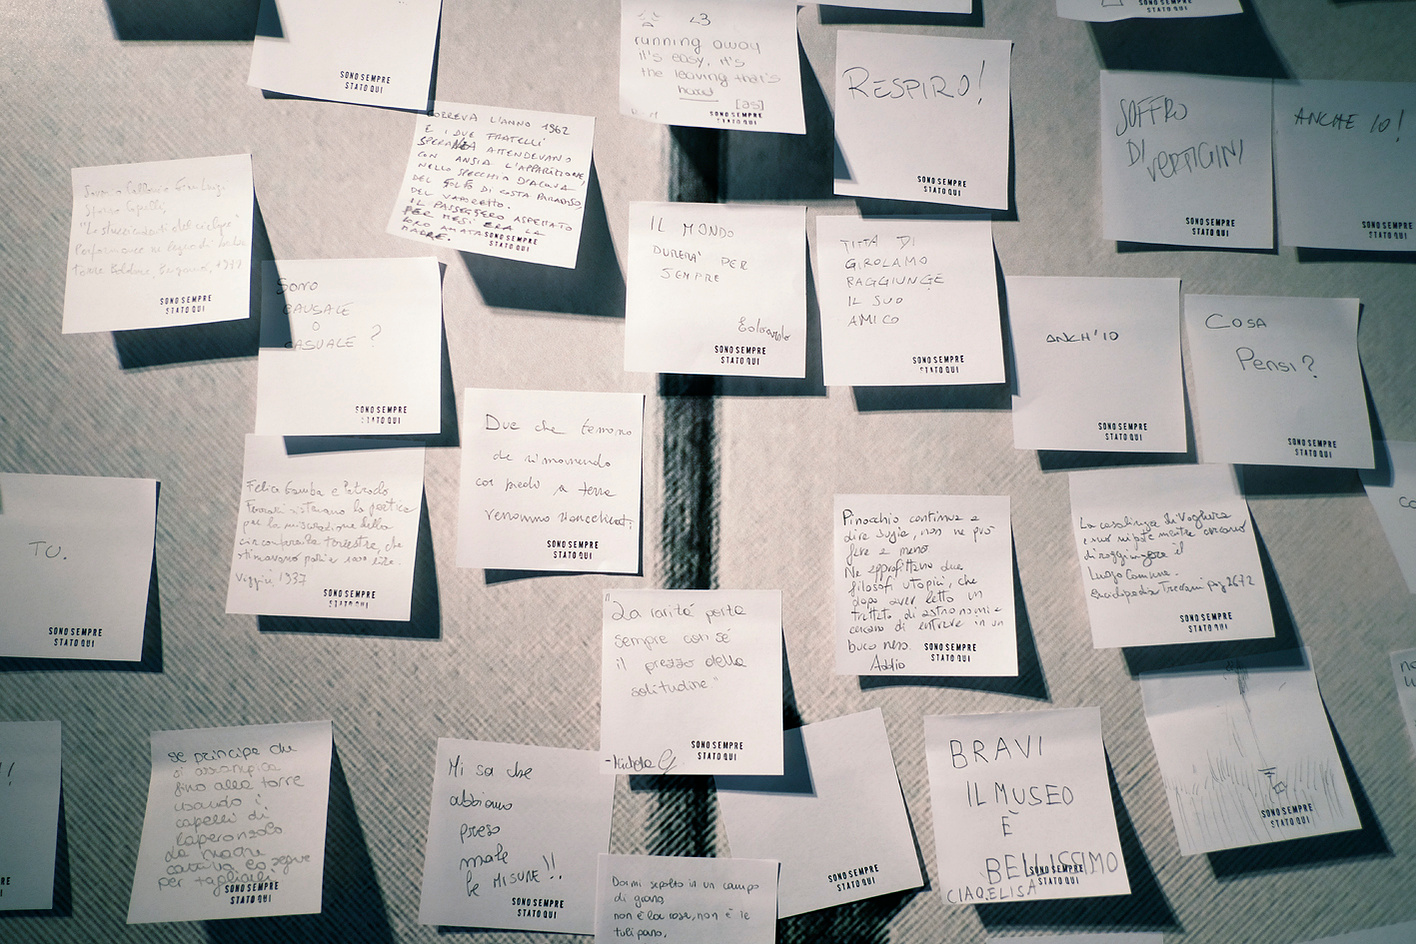 SONO SEMPRE
STATO QUI
<3
running away
it's easy, it's
the leaving that's
hard
[as]
SONO SEMPRE
STATO QUI
RESPIRO!
SONO SEMPRE
STATO QUI
STATO QUI
SOFFRO
DI VERTIGINI
SONO SEMPRE
STATO QUI
ANCHE IO!
SONO SEMPRE
STATO QUI
CORREVA L'ANNO 1962
E I DUE FRATELLI
SPERANZA ATTENDEVANO
CON ANSIA L'APPARIZIONE,
NELLO SPECCHIO D'ACQUA
DEL GOLFO DI COSTA PARADISO,
DEL VAPORETTO.
IL PASSEGGERO ASPETTATO
PER MESI ERA LA
LORO AMATA
MADRE.
SONO SEMPRE
STATO QUI
SONO SEMPRE
STATO QUI
Sono
CAUSALE
O
CASUALE?
SONO SEMPRE
STATO QUI
IL MONDO
DURERA' PER
SEMPRE
Edoardo
SONO SEMPRE
STATO QUI
TITTA DI
GIROLAMO
RAGGIUNGE
IL SUO
AMICO
SONO SEMPRE
STATO QUI
ANCH'IO
SONO SEMPRE
STATO QUI
COSA
Pensi?
SONO SEMPRE
STATO QUI
Due che temono
de rimanendo
coi piedi a terra
verranno
SONO SEMPRE
STATO QUI
TU.
SONO SEMPRE
STATO QUI
Felice Gamba e
Ferrari la
per la misurazione della
circonferenza terrestre, che
stimavano pari a 1000 lire.
1937
SONO SEMPRE
STATO QUI
Pinocchio continua a
dire bugie, non ne può
fare a meno
Ne approfittano due
filosofi utopici, che
dopo aver letto un
trattato di astronomia
cercano di entrare in un
buco nero.
Addio
SONO SEMPRE
STATO QUI
La casalinga di Voghera
e suo nipote mentre cercano
di raggiungere il
Luogo Comune.
Enciclopedia Treccani pag 2672
SONO SEMPRE
STATO QUI
"La rarità porta
sempre con sé
il prezzo della
solitudine."
SONO SEMPRE
STATO QUI
se principe che
si arrampica
fino alla torre
usando i
capelli di
Raperonzolo
La madre
cattiva lo segue
per tagliarli
SONO SEMPRE
STATO QUI
Mi sa che
abbiamo
preso
male
le MISURE!!
SONO SEMPRE
STATO QUI
SONO SEMPRE
STATO QUI
BRAVI
IL MUSEO
È
BELLISSIMO
CIAO, ELISA
SONO SEMPRE
STATO QUI
SONO SEMPRE
STATO QUI
Dormi sepolto in un campo
di grano
non è la rosa, non è il
tulipano,